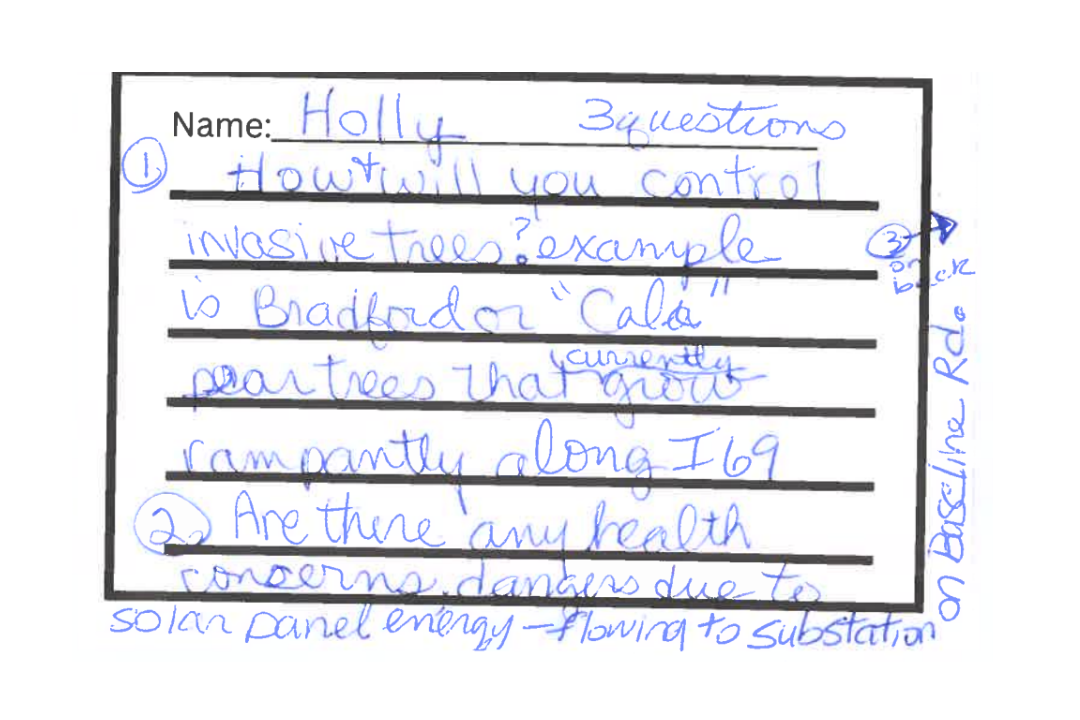 Name: Holly 3 questions
① How will you control
invasive trees? example
is Bradford or "Cala"
pear trees that currently grow
rampantly along I69
②. Are there any health
concerns, dangers due to
solar panel energy – flowing to substation
on Baseline Rd.
③ → on back